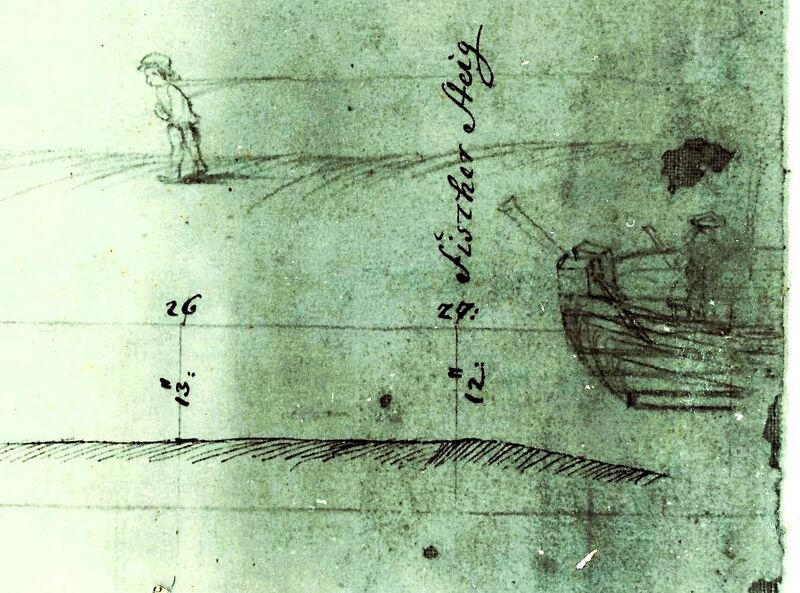 26
27: Fischer Steig
"13:
"12: